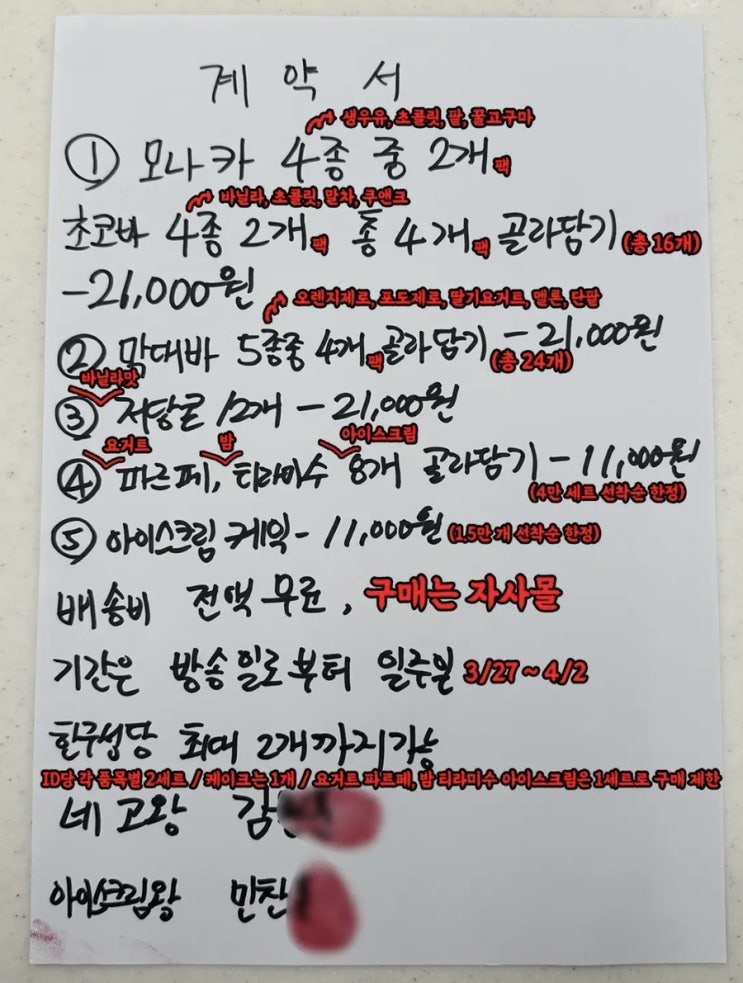 계 약 서
생우유, 초콜릿, 팥, 꿀고구마
① 모나카 4종 중 2개 팩
바닐라, 초콜릿, 말차, 쿠앤크
초코바 4종 2개 팩 총 4개 팩 골라담기 (총 16개)
-21,000원
오렌지제로, 포도제로, 딸기요거트, 멜론, 단팥
② 막대바 5종중 4개 팩 골라담기 - 21,000원
(총 24개)
바닐라맛
③ 저당콘 12개 - 21,000원
요거트 밤 아이스크림
④ 파르페, 티라미수 8개 골라담기 - 11,000원
(4만 세트 선착순 한정)
⑤ 아이스크림 케익 - 11,000원 (1.5만 개 선착순 한정)
배송비 전액 무료, 구매는 자사몰
기간은 방송일로부터 일주일 3/27 ~ 4/2
한구성당 최대 2개까지가능
ID당 각 품목별 2세트 / 케이크는 1개 / 요거트 파르페, 밤 티라미수 아이스크림은 1세트로 구매 제한
네고왕 김
아이스크림왕 민찬